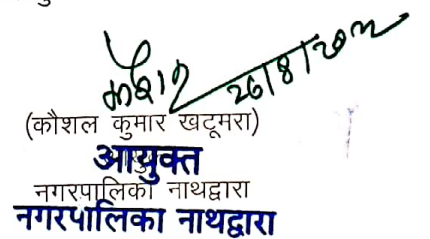 कौशल 26/8/2022
(कौशल कुमार खटूमरा)
आयुक्त
नगरपालिका नाथद्वारा
नगरपालिका नाथद्वारा